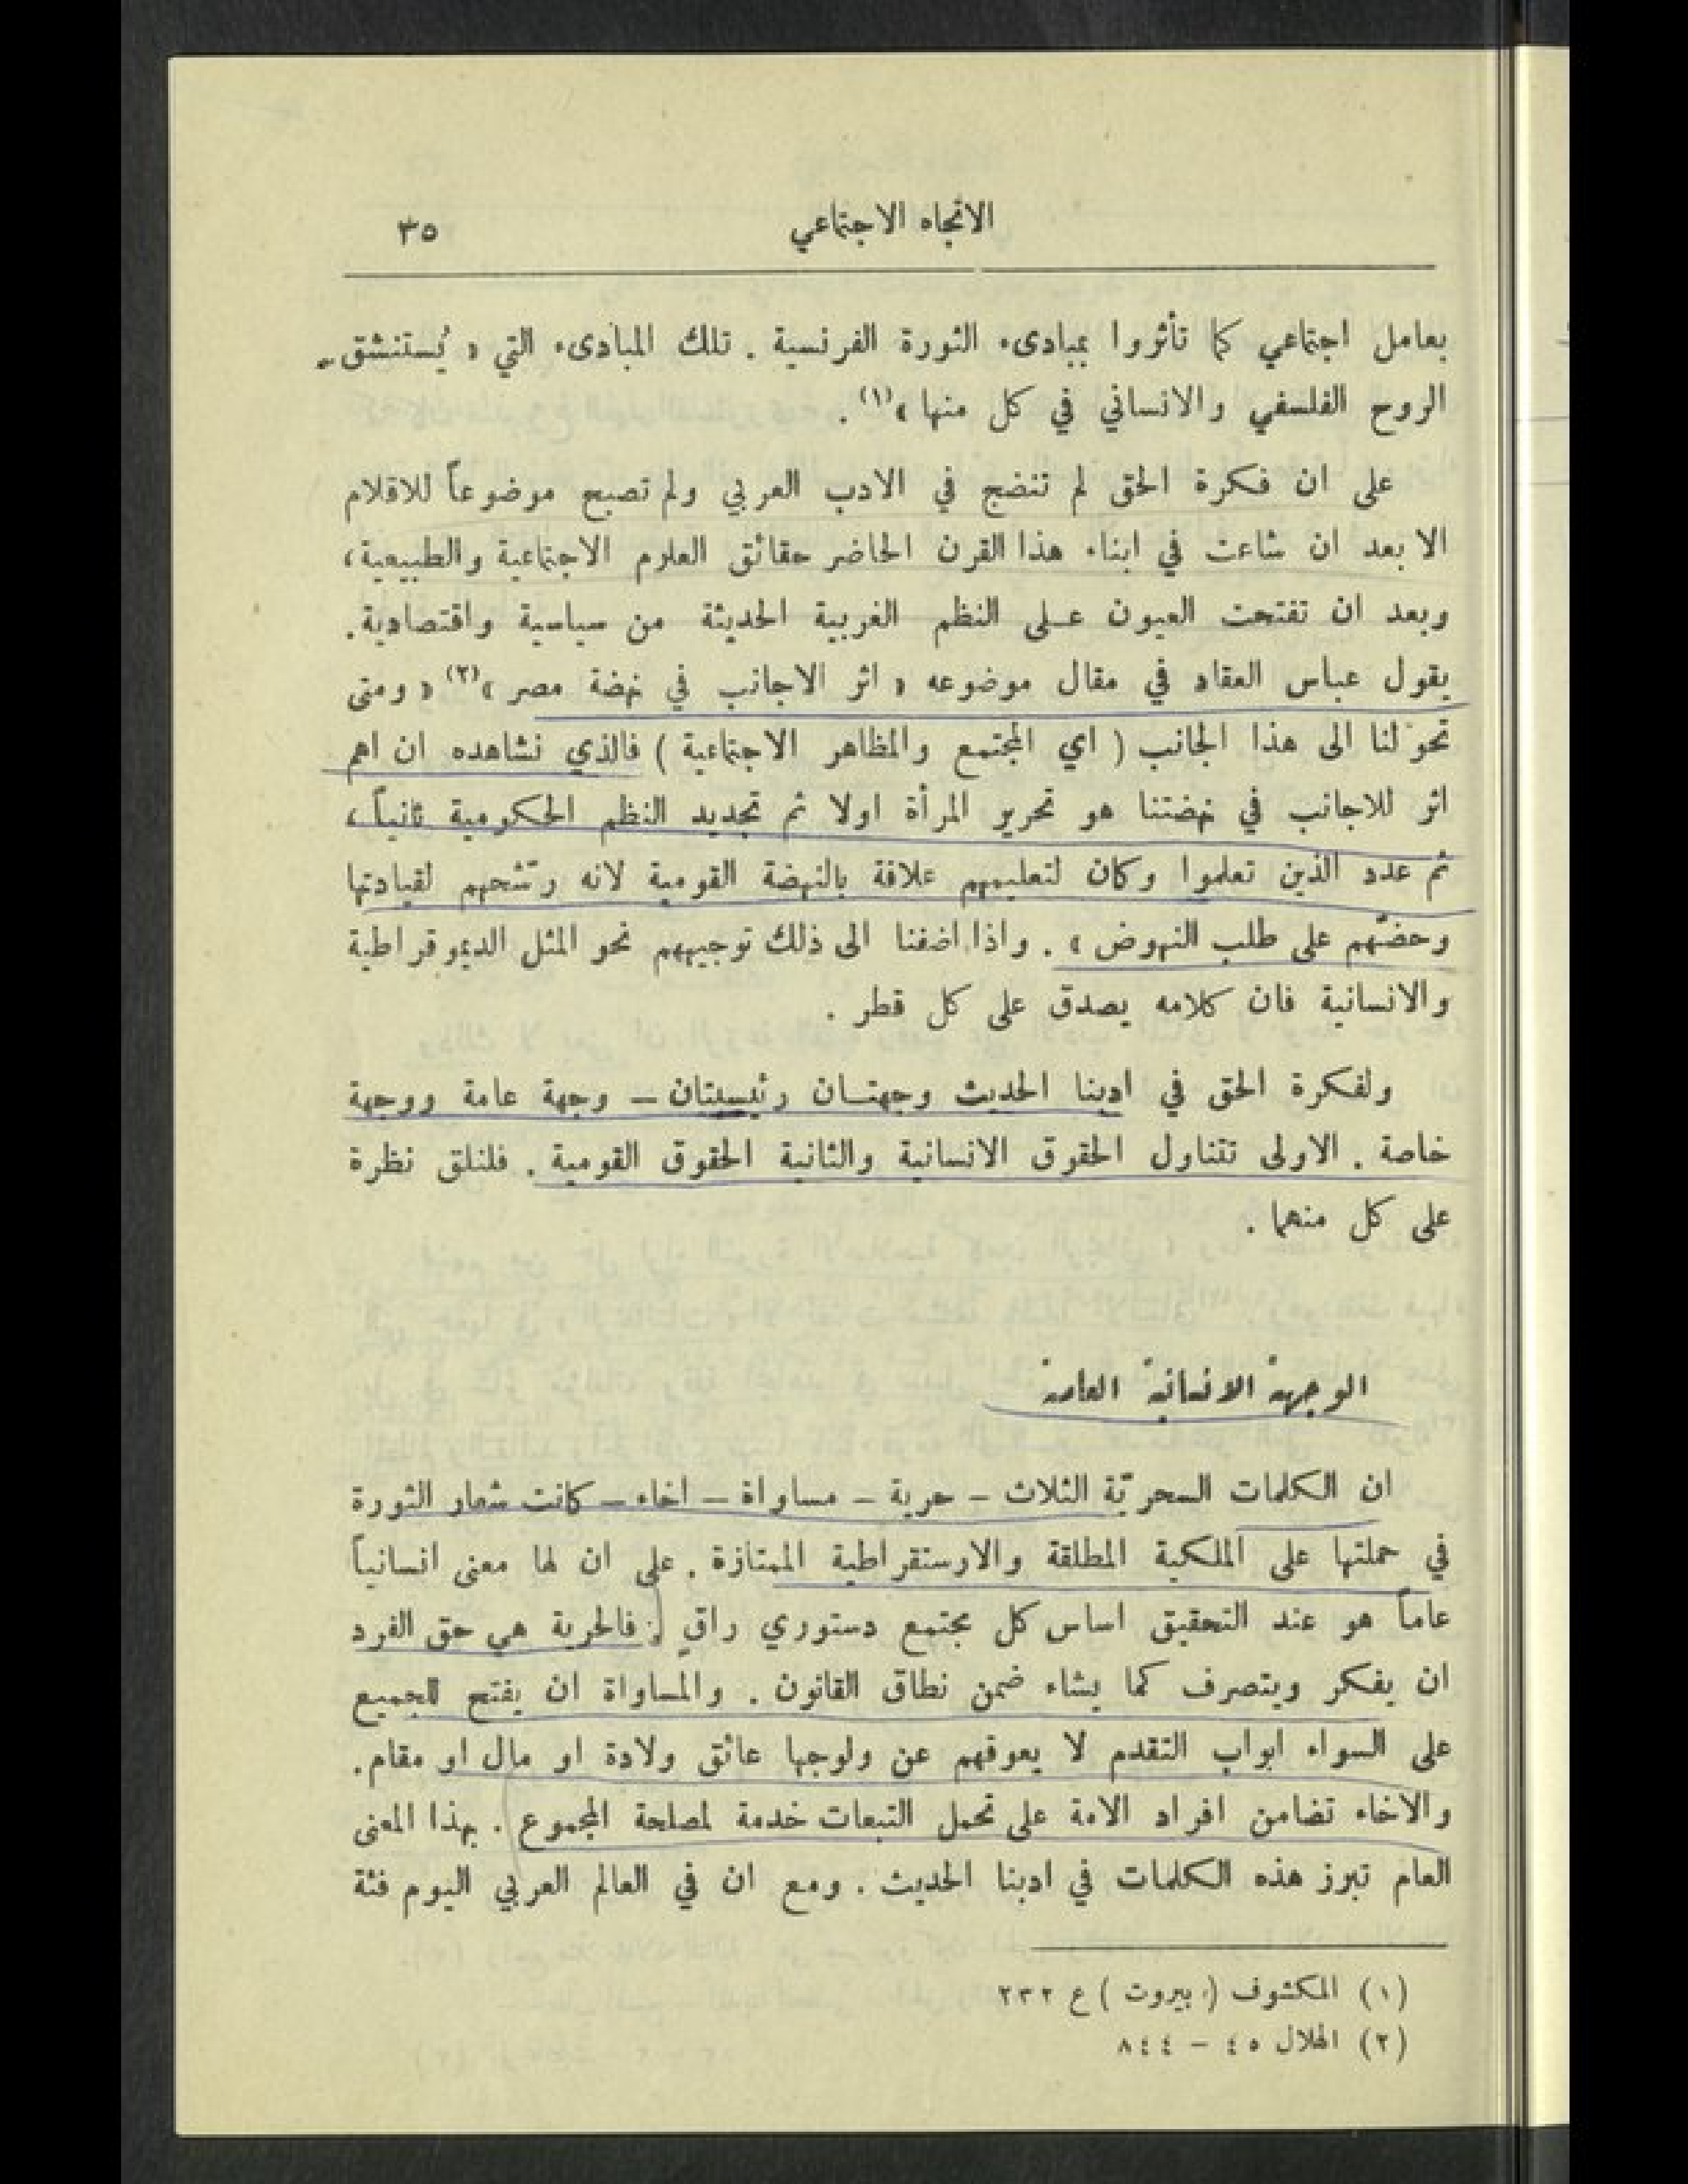 الاتجاه الاجتماعي ٣٥
بعامل اجتماعي كما تأثروا بمبادىء الثورة الفرنسية . تلك المبادىء التي « يُستنشق
الروح الفلسفي والانساني في كل منها »(١) .
على ان فكرة الحق لم تنضج في الادب العربي ولم تصبح موضوعاً للاقلام
الا بعد ان شاعت في ابناء هذا القرن الحاضر حقائق العلوم الاجتماعية والطبيعية ،
وبعد ان تفتحت العيون على النظم الغربية الحديثة من سياسية واقتصادية .
يقول عباس العقاد في مقال موضوعه « اثر الاجانب في نهضة مصر »(٢) « ومتى
تحوّلنا الى هذا الجانب ( اي المجتمع والمظاهر الاجتماعية ) فالذي نشاهده ان اهم
اثر للاجانب في نهضتنا هو تحرير المرأة اولا ثم تجديد النظم الحكومية ثانياً ،
ثم عدد الذين تعلموا وكان لتعليمهم علاقة بالنهضة القومية لانه رشّحهم لقيادتها
وحضّهم على طلب النهوض » . واذا اضفنا الى ذلك توجيههم نحو المثل الديموقراطية
والانسانية فان كلامه يصدق على كل قطر .
ولفكرة الحق في ادبنا الحديث وجهتان رئيسيتان – وجهة عامة ووجهة
خاصة . الاولى تتناول الحقوق الانسانية والثانية الحقوق القومية . فلنلق نظرة
على كل منهما .
الوجهة الانسانية العامة
ان الكلمات السحريّة الثلاث – حرية – مساواة – اخاء – كانت شعار الثورة
في حملتها على الملكية المطلقة والارستقراطية الممتازة . على ان لها معنى انسانياً
عاماً هو عند التحقيق اساس كل مجتمع دستوري راقٍ : فالحرية هي حق الفرد
ان يفكر ويتصرف كما يشاء ضمن نطاق القانون . والمساواة ان يفتح للجميع
على السواء ابواب التقدم لا يعوقهم عن ولوجها عائق ولادة او مال او مقام .
والاخاء تضامن افراد الامة على تحمل التبعات خدمة لمصلحة المجموع . بهذا المعنى
العام تبرز هذه الكلمات في ادبنا الحديث . ومع ان في العالم العربي اليوم فئة
(١) المكشوف ( بيروت ) ع ٢٣٢
(٢) الهلال ٤٥ – ٨٤٤